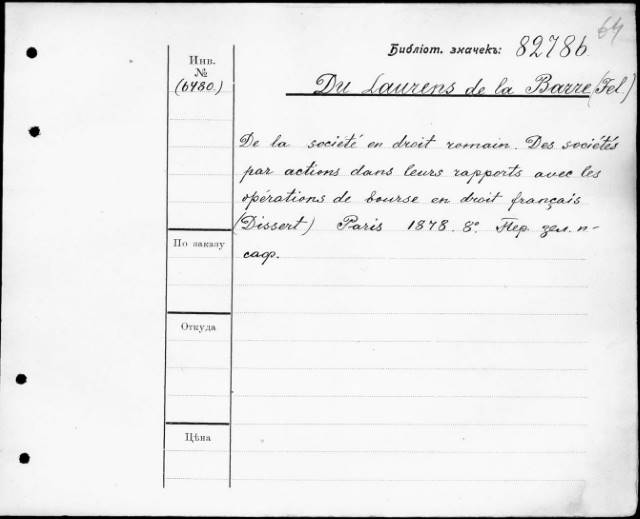 64
Библіот. значекъ: 82786
Инв.
№
(6480.)
Du Laurens de la Barre (Fel.)
De la société en droit romain. Des sociétés
par actions dans leurs rapports avec les
opérations de bourse en droit français.
(Dissert) Paris 1878. 8°. Пер. зел. п-
саф.
По заказу
Откуда
Цѣна